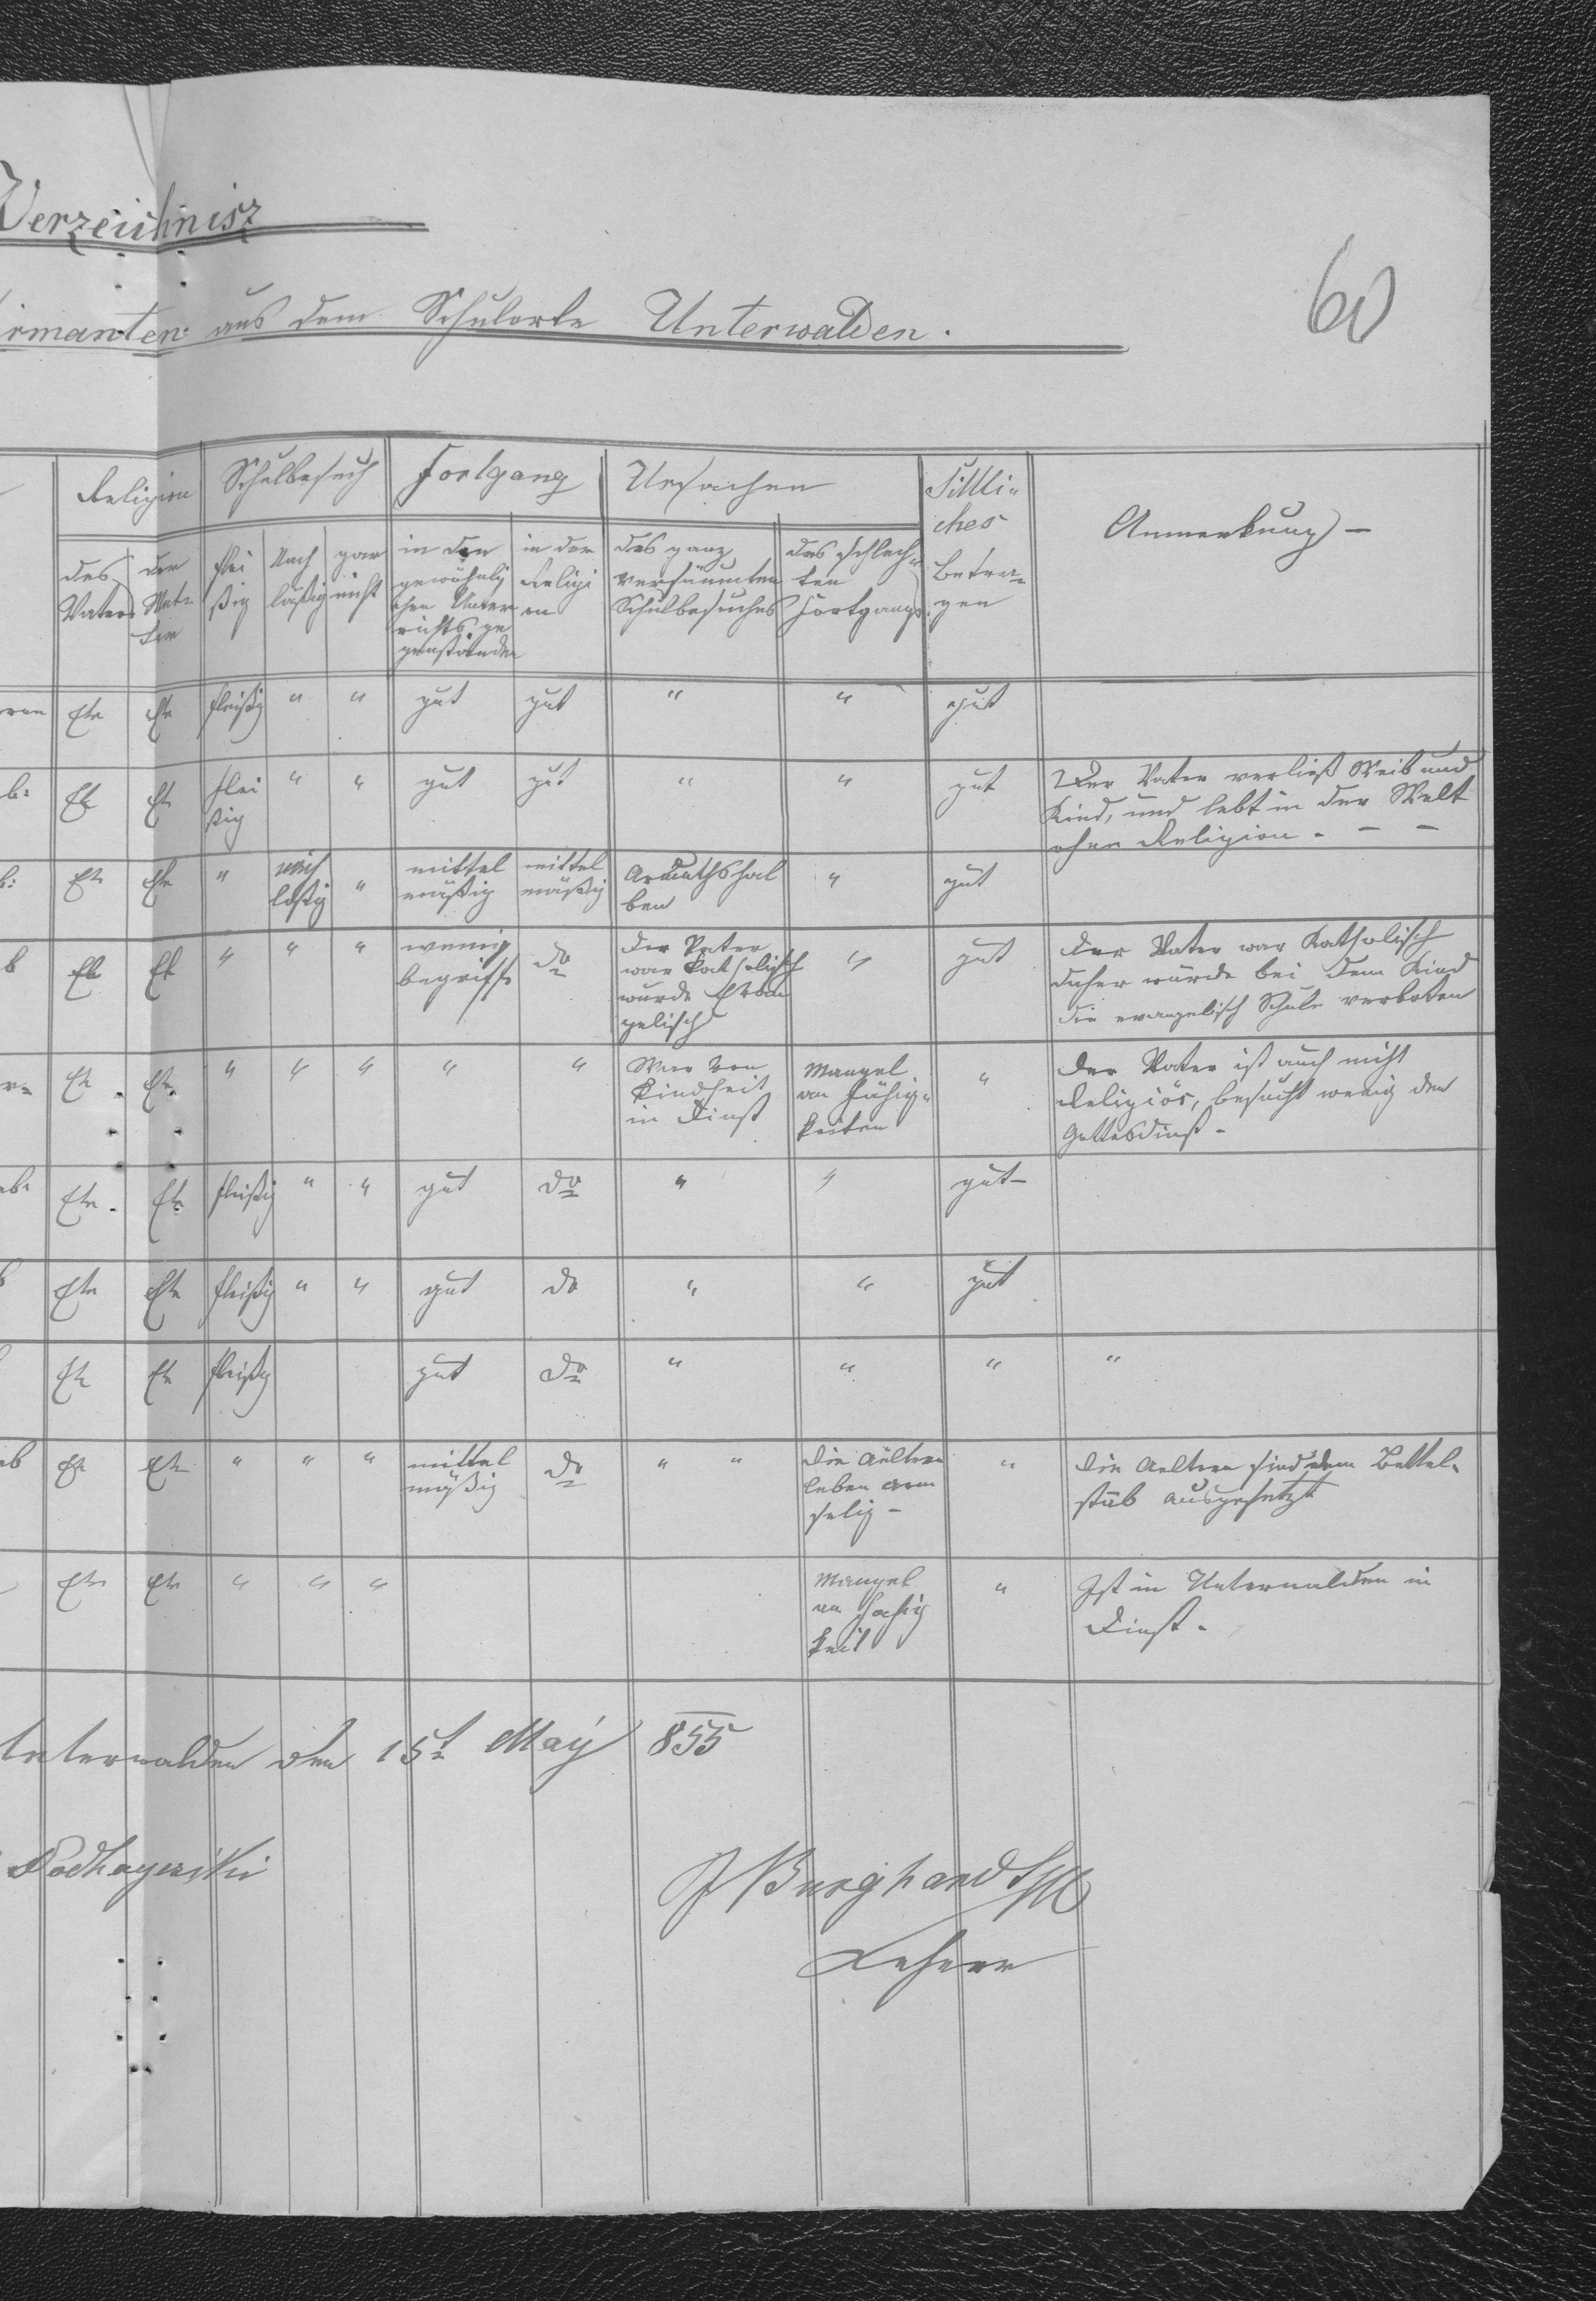 Verzeichnisz
irmanten aus dem Schulorte Unterwalden.
60
Religion Schulbesuch Fortgang Ursachen Sittli- Anmerkung –
ches
Betra-
gen
des Vaters
der Mut-
ter
flei
ßig
Nach
läßig
gar
nicht
in den
gewöhnli
chen Unter
richts ge
genständen
in der
Religi
on
des ganz
versäumten
Schulbesuches
des schlech-
ten
Fortgangs
Ev Ev fleißig " " gut gut " " gut
b: Ev Ev flei
ßig " " gut gut " " gut Der Vater verließ Weib und
Kind, und lebt in der Welt
ohne Religion. – –
b: Ev Ev " nach
läßig " mittel
mäßig mittel
mäßig Armuthshal
ben " gut
b Ev Ev " " " wenig
begriffe do Der Vater
war Katholisch
wurde Evan
gelisch " gut Der Vater war Katholisch
daher würde bei dem Kind
die evangelisch Schule verboten
Ev. Ev. " " " " " War von
Kindheit
in Dinst Mangel
an Fähig-
keiten " Der Vater ist auch nicht
Religiös, besucht wenig den
Gottesdinst –
Ev. Ev. fleißig " " gut do " " gut –
Ev Ev fleißig " " gut do " " gut
Ev Ev fleißig gut do " " " "
Ev Ev " " " mittel
mäßig do " " Die Aeltern
leben arm
selig – " Die Aeltern sind dem Bettel-
stab ausgesetzt
Ev Ev " " " Mangel
an Fähig
keit " Ist in Unterwalden in
Dinst.
Unterwalden den 15t May 855
Podhayeński
J Burghardt
Lehrer